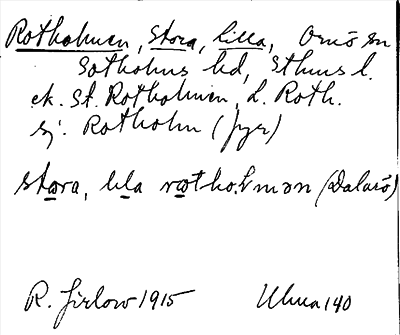 Rotholmen, Stora, Lilla, Ornö sn
Sotholms hd, Sthms l.
ek. St. Rotholmen, L. Roth.
sj. Rotholm (fyr)
stora, lila rotholmən (Dalarö)
R. Jirlow 1915 Uhua 140